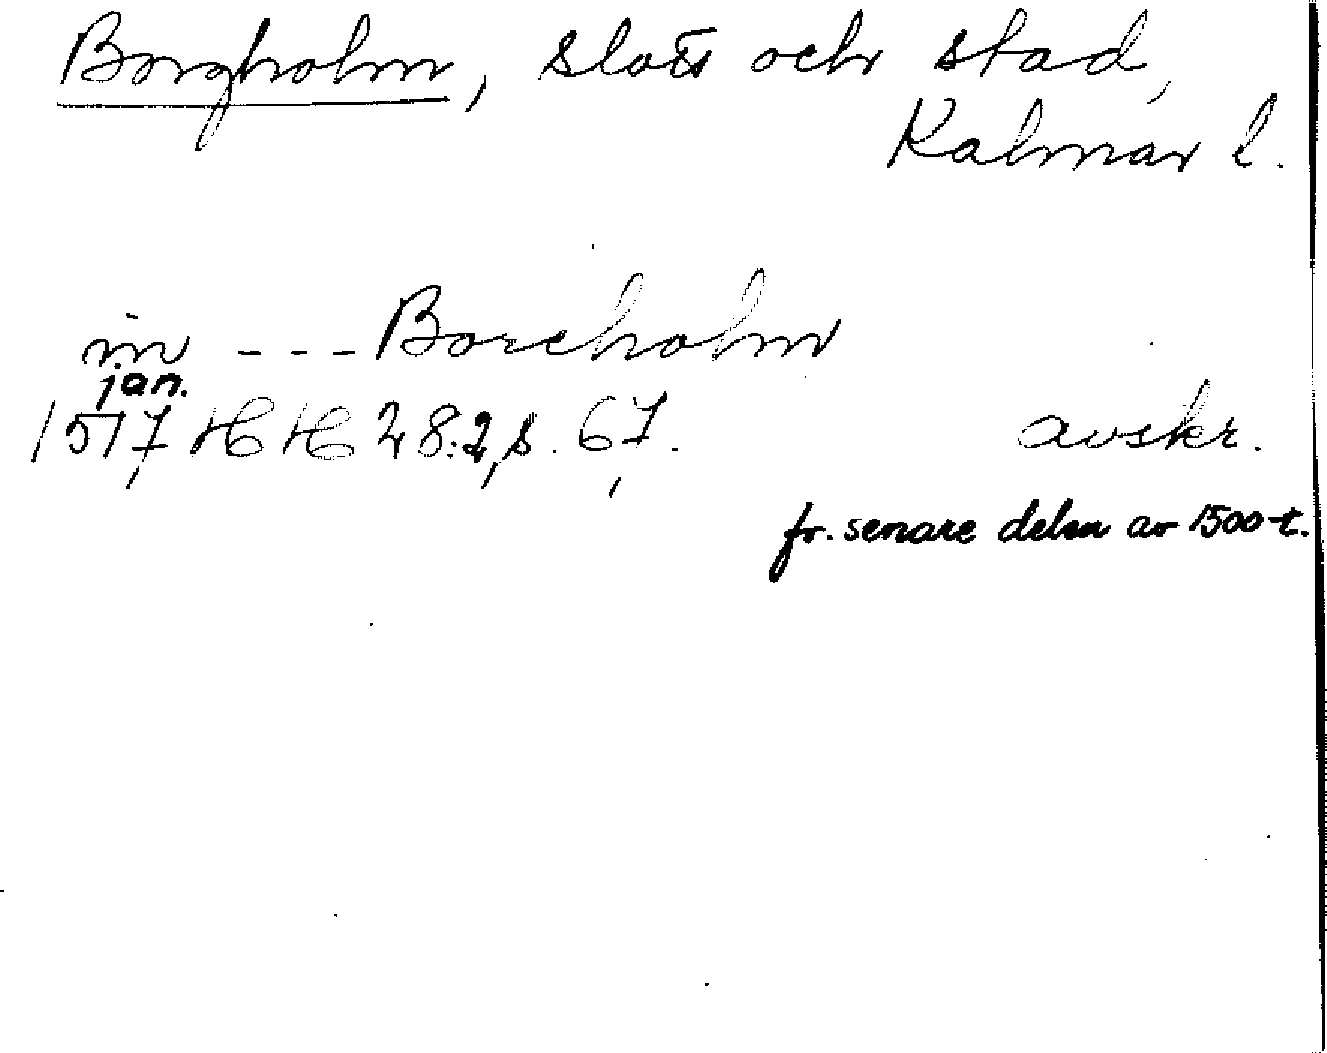 Borgholm, slott och stad,
Kalmar l.
in --- Borcholm
jan.
1517 HH 28:2, s. 67. avskr.
fr. senare delen av 1500-t.